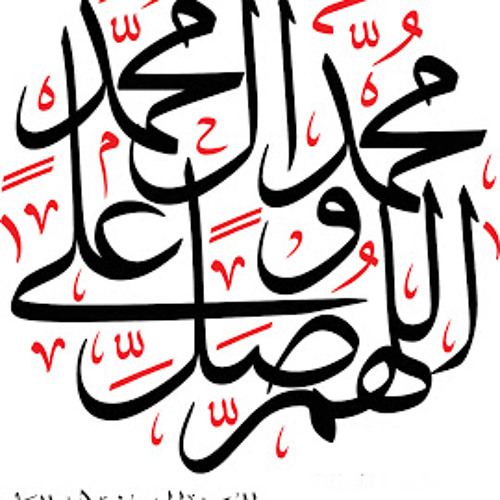 اللهم صل على
محمد و ال محمد